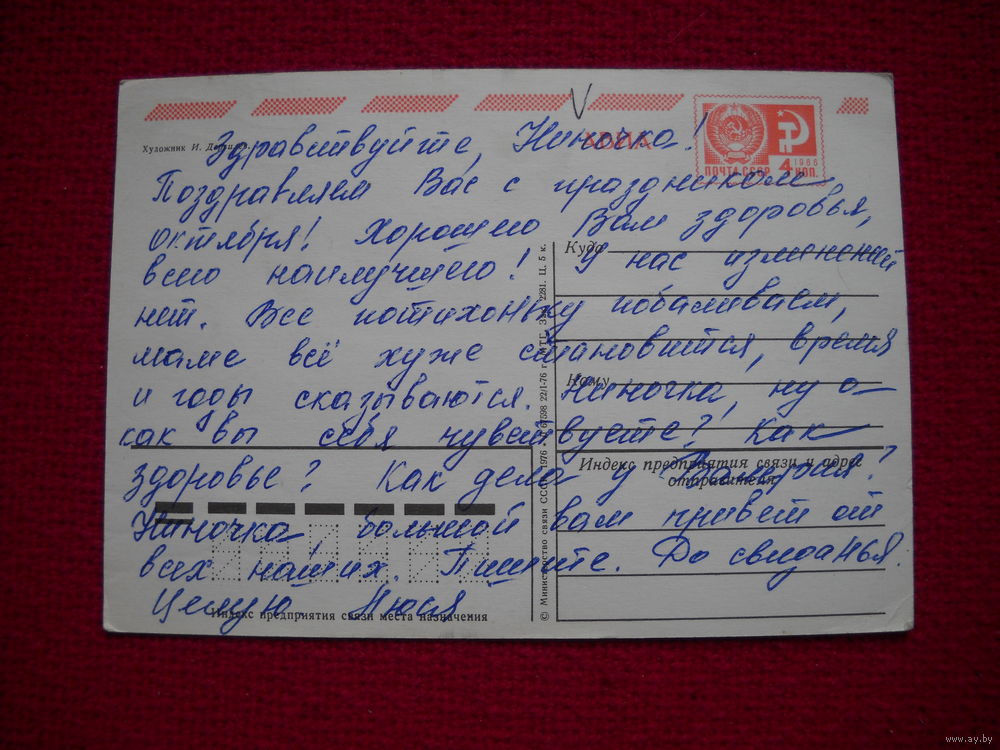 Художник И.
АВИА
ПОЧТА СССР 4 КОП.
1966
Здравствуйте, Ниночка!
Поздравляем Вас с праздником
Октября! Хорошего Вам здоровья,
всего наилучшего! У нас изменений
нет. Все потихоньку побаливаем,
маме всё хуже становится, время
и годы сказываются. Ниночка, ну а
как вы себя чувствуете? Как
здоровье? Как дела у Валерия?
Ниночка большой вам привет от
всех наших. Пишите. До свиданья
Целую. Нюся
Куда
Кому
Индекс предприятия связи и адрес
отправителя
Индекс предприятия связи места назначения
© Министерство связи СССР 1976 22/I-76 г. МТГ. 2281. Ц. 5 к.
www.ay.by